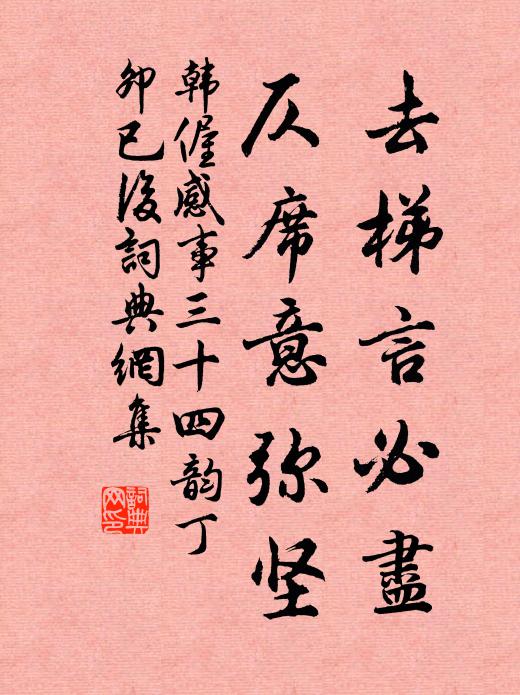 去梯言必盡
仄席意弥坚
韩偓感事三十四韵丁
卯已後詞典網集
詞典网印